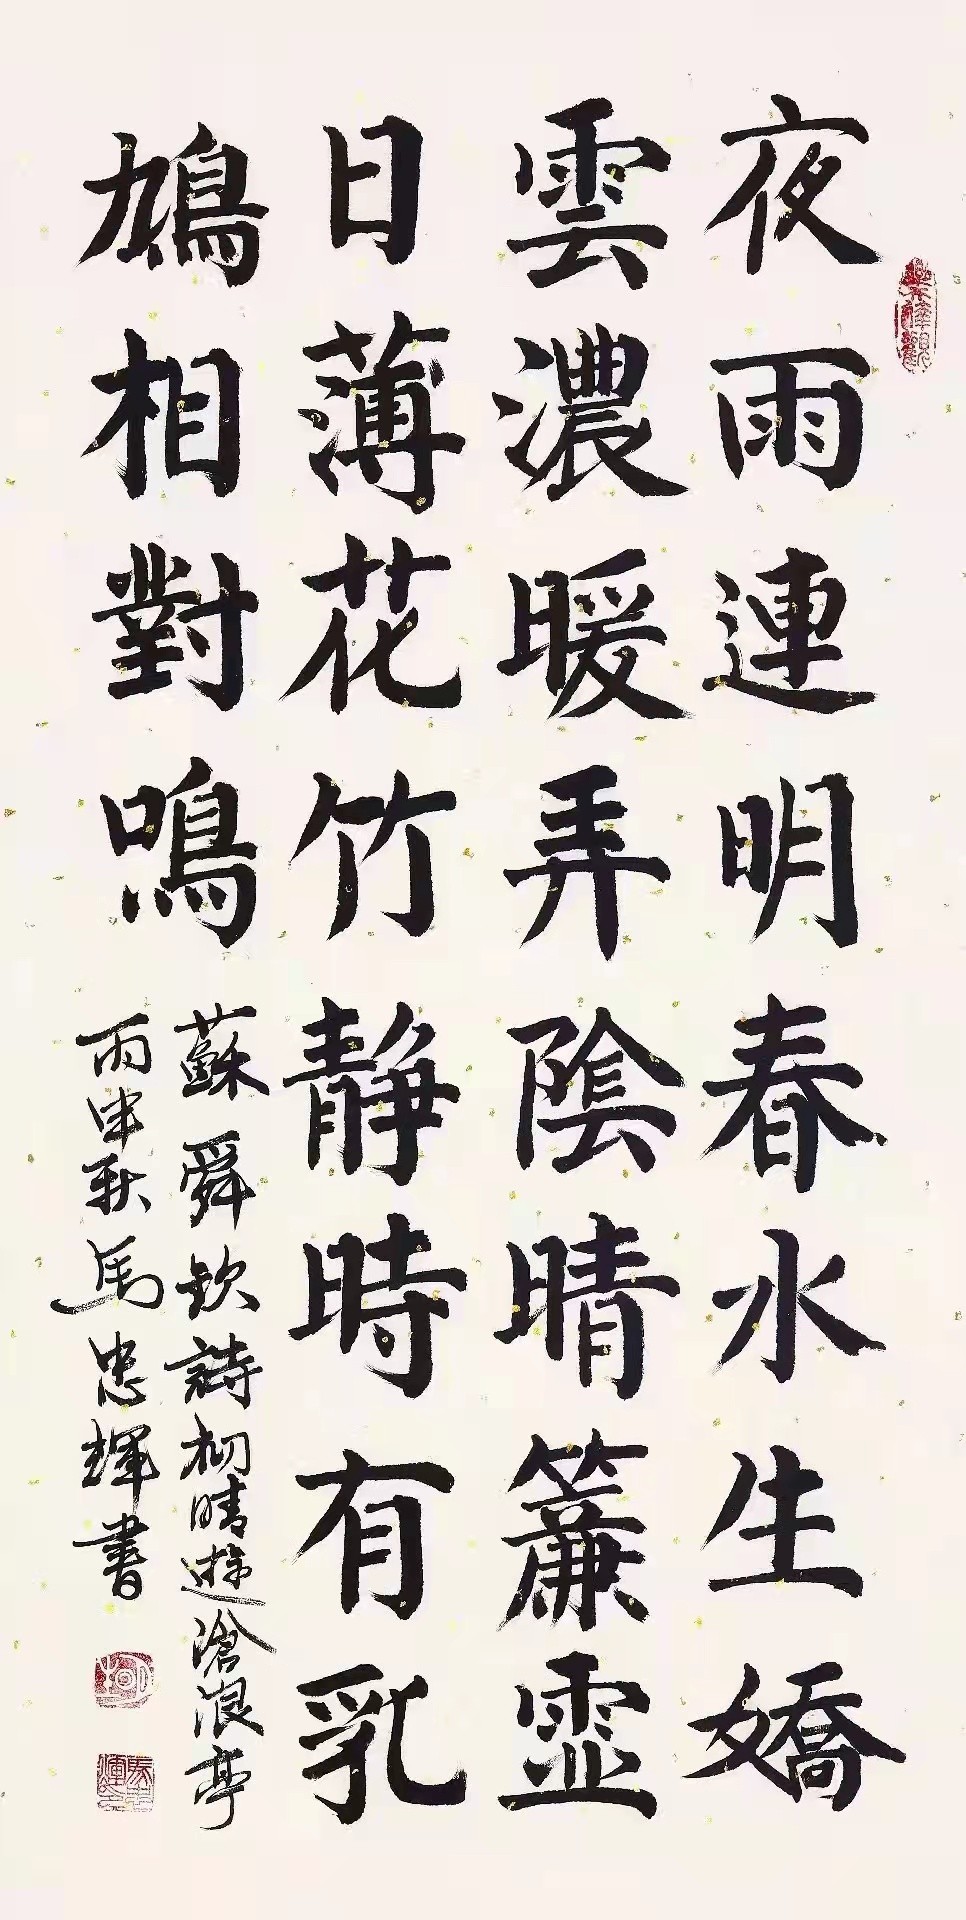 夜雨連明春水生嬌
雲濃暖弄陰晴簾霊
日薄花竹静時有乳
鳩相對鳴
蘇舜欽詩初晴遊滄浪亭
丙申秋馬忠輝書